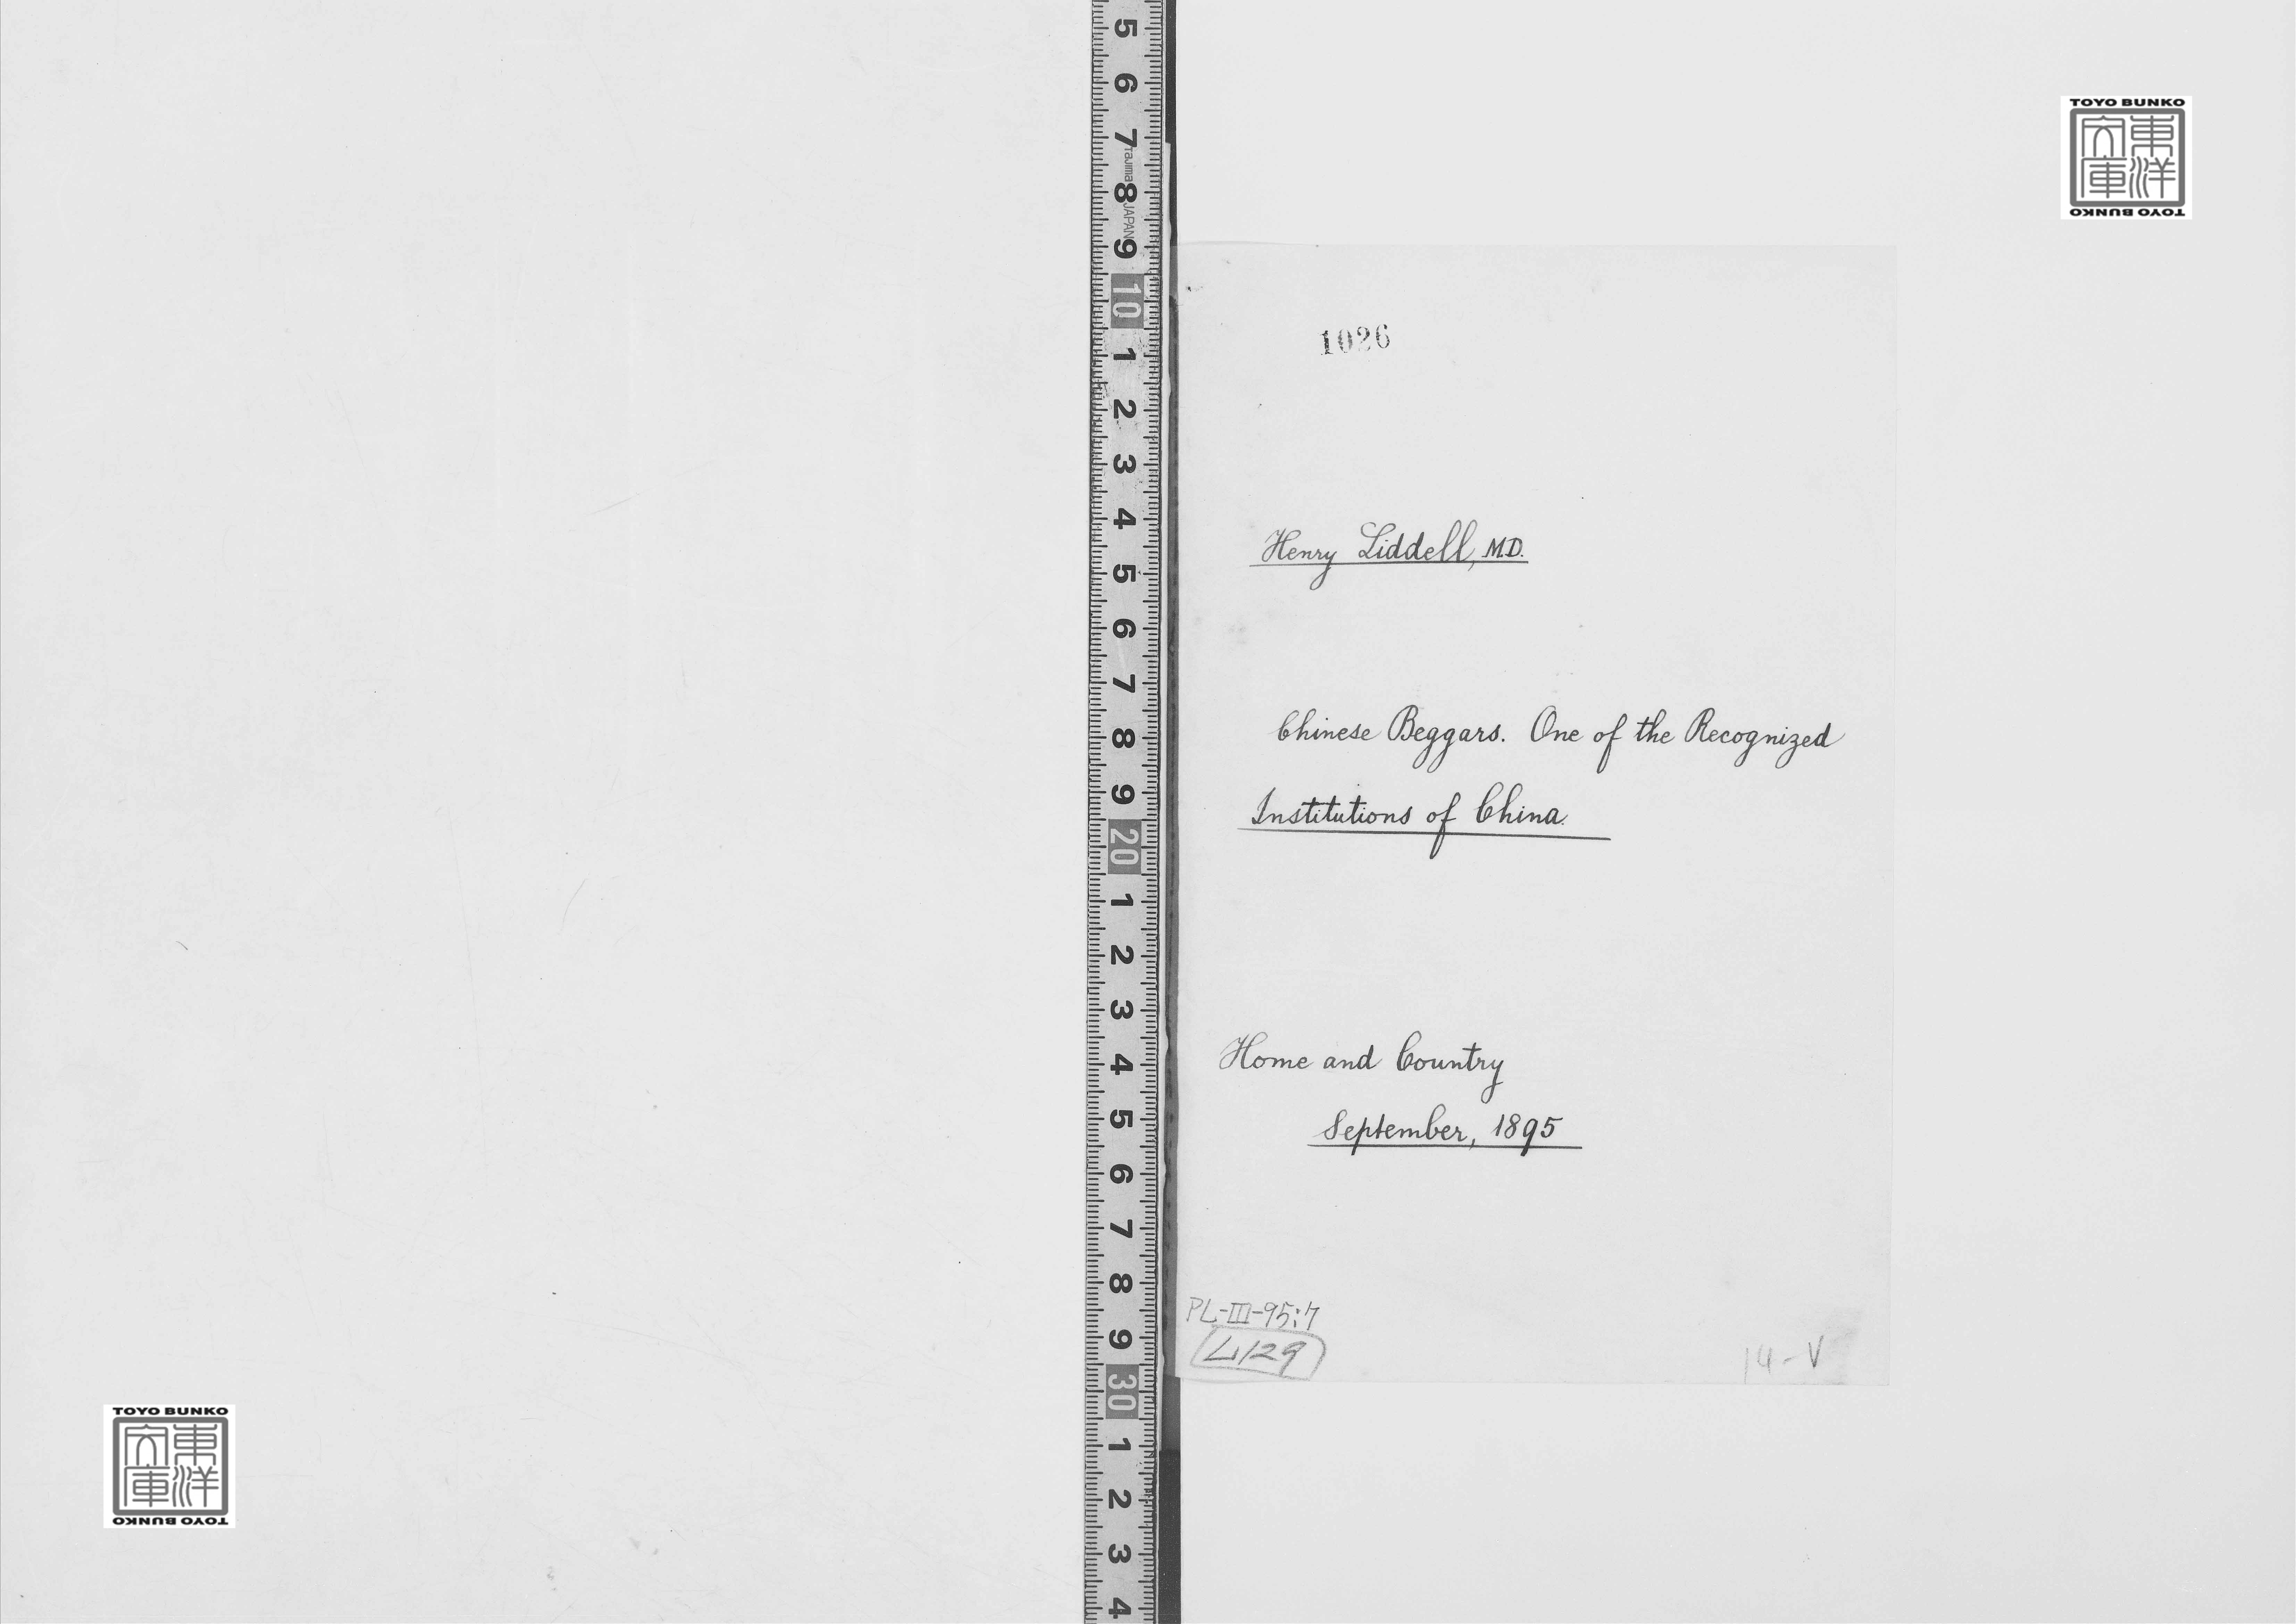 TOYO BUNKO
東洋
文庫
TOYO BUNKO
5 6 7 8 9 10 1 2 3 4 5 6 7 8 9 20 1 2 3 4 5 6 7 8 9 30 1 2 3 4
Tajima JAPAN
1026
Henry Liddell, M.D.
Chinese Beggars. One of the Recognized
Institutions of China.
Home and Country
September, 1895
PL-III-95:7
L129
14-V
TOYO BUNKO
東洋
文庫
TOYO BUNKO